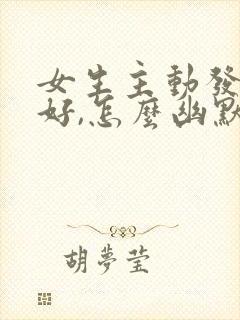 女生主動發
好,怎麼幽默
胡夢瑩